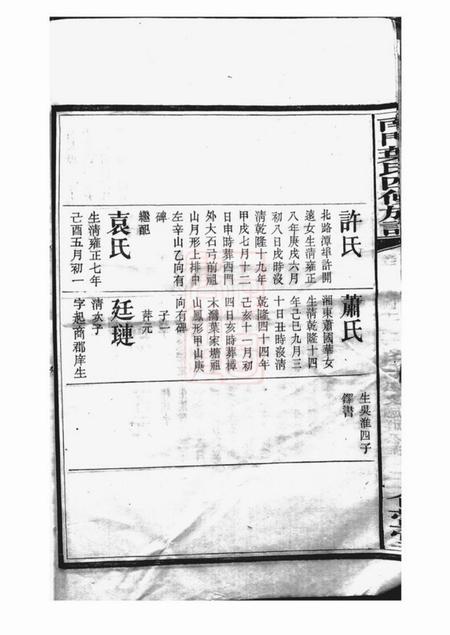 南門葉氏四修族譜
許氏
北路潭埠許開
遠女生清雍正
八年庚戌六月
初八日戌時沒
清乾隆十九年
甲戌七月十二
日申時葬西門
外大石弓前祖
山月形上排中
左辛山乙向有
碑
繼配
袁氏
生清雍正七年
己酉五月初一
蕭氏
湘東蕭國華女
生清乾隆十四
年己巳九月三
十日丑時沒清
乾隆四十四年
己亥十一月初
四日亥時葬樟
木灣葉家塘祖
山鳳形甲山庚
向有碑
子二
葬元
廷璉
清次子
字起商郡庠生
生吳淮四子
鐸書